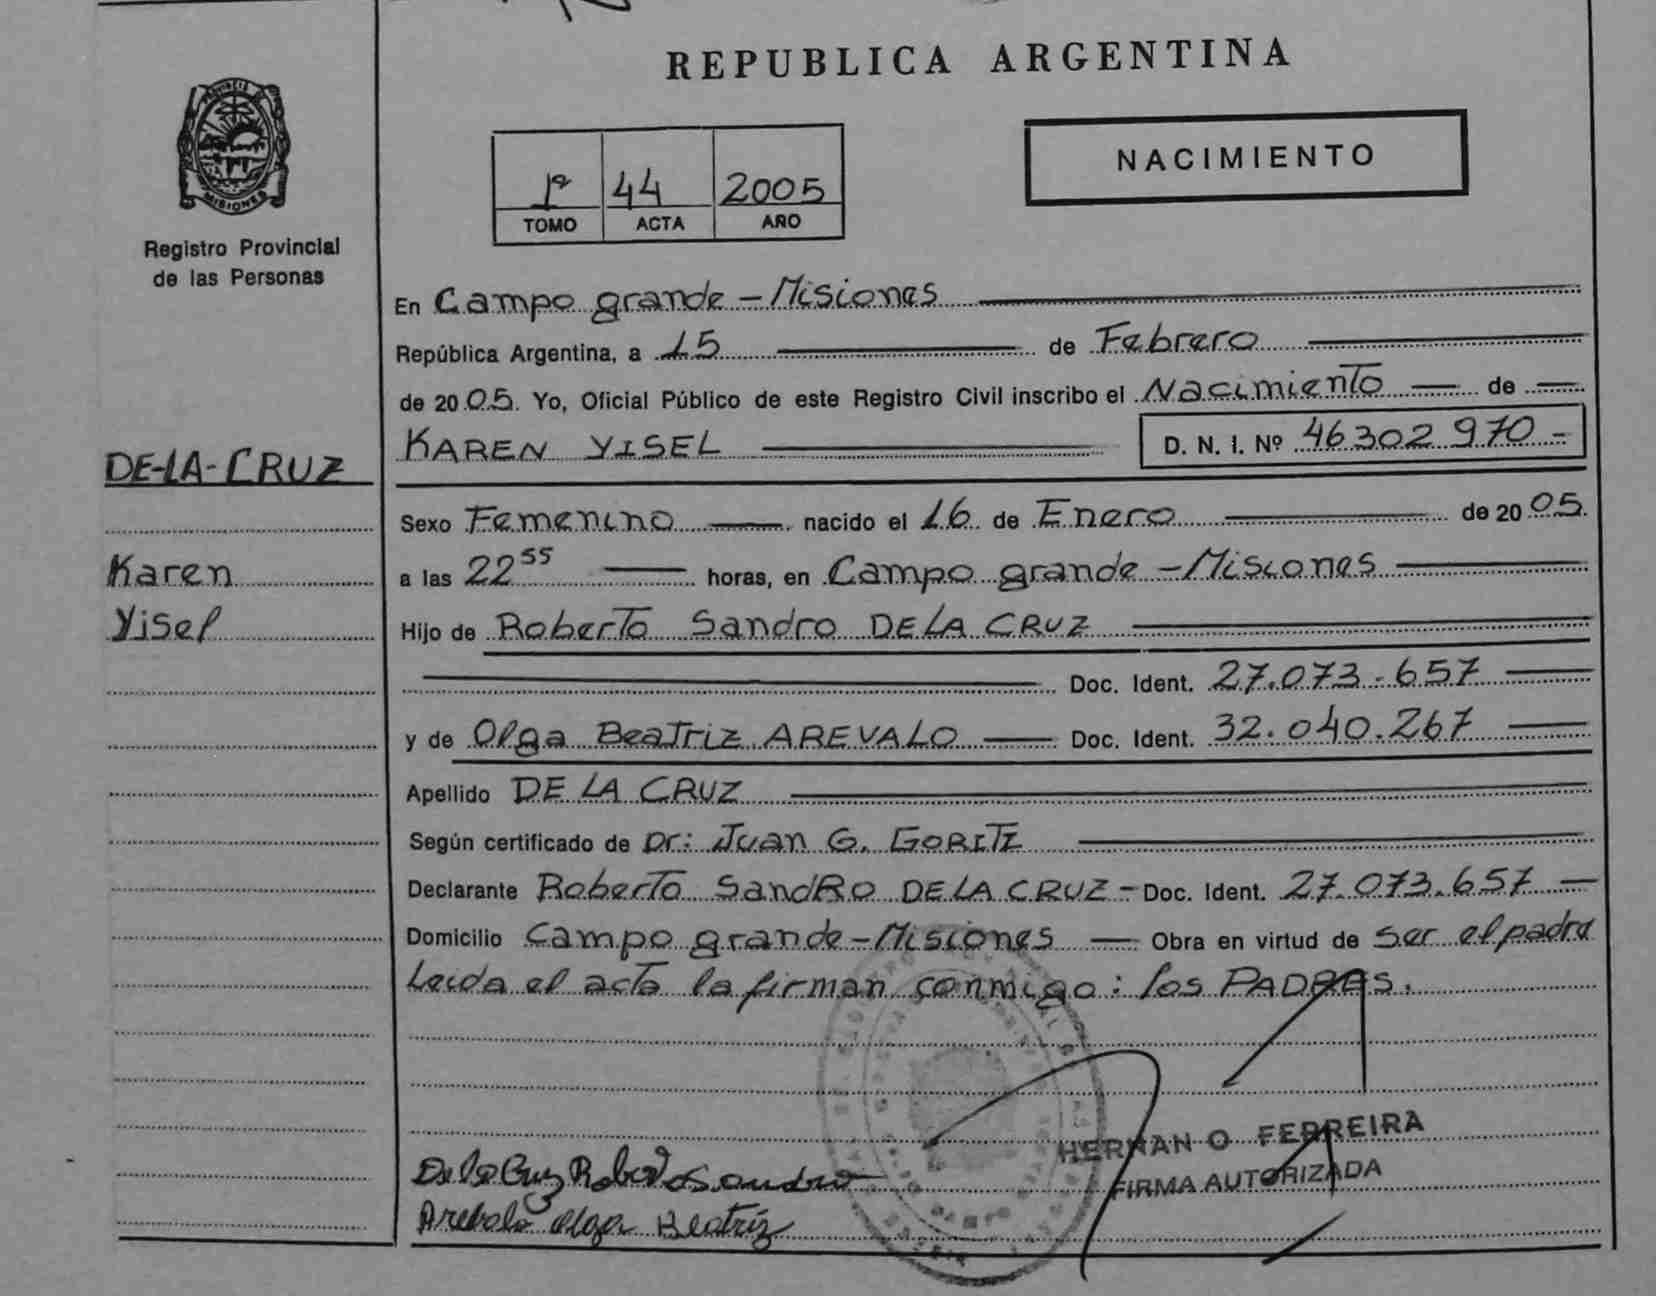 REPUBLICA ARGENTINA
PROVINCIA DE
MISIONES
Registro Provincial
de las Personas
1º 44 2005
TOMO ACTA AÑO
NACIMIENTO
DE-LA-CRUZ
Karen
Yisel
En Campo grande - Misiones
República Argentina, a 15 de Febrero
de 2005. Yo, Oficial Público de este Registro Civil inscribo el Nacimiento de
KAREN YISEL D. N. I. Nº 46302970-
Sexo Femenino nacido el 16 de Enero de 2005.
a las 22 55 horas, en Campo grande - Misiones
Hijo de Roberto Sandro DE LA CRUZ
Doc. Ident. 27.073.657
y de Olga Beatriz AREVALO Doc. Ident. 32.040.267
Apellido DE LA CRUZ
Según certificado de Dr: Juan G. GORITZ
Declarante Roberto SandRO DE LA CRUZ - Doc. Ident. 27.073.657
Domicilio Campo grande - Misiones Obra en virtud de ser el padre
Leida el acta la firman conmigo: los PADRES.
HERNAN O FERREIRA
FIRMA AUTORIZADA
De la Cruz Roberto Sandro
Arebalo Olga Beatriz